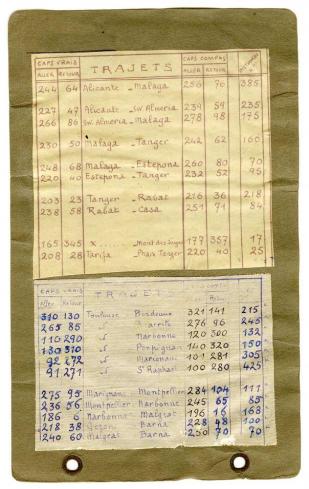 CAPS VRAIS TRAJETS CAPS COMPAS
ALLER RETOUR ALLER RETOUR
244 64 Alicante - Malaga 256 70 385
227 47 Alicante - Sw. Almeria 239 59 235
266 86 Sw. Almeria - Malaga 278 98 175
230 50 Malaga - Tanger 242 62 160
248 68 Malaga - Estepona 260 80 70
220 40 Estepona - Tanger 232 52 95
203 23 Tanger - Rabat 216 36 218
238 58 Rabat - Casa 251 71 84
165 345 x - Mont des Singes 177 357 17
208 28 Tarifa - Phare Tanger 220 40 25
CAPS VRAIS TRAJETS
Aller Retour
310 130 Toulouse Bordeaux 321 141 215
265 85 " 276 96 245
110 290 " Narbonne 120 300 132
130 310 " Perpignan 140 320 150
92 272 " Marignan 101 281 305
91 271 " St Raphael 100 280 425
275 95 Marignan Montpellier 284 104 111
236 56 Montpellier Narbonne 245 65 85
186 6 Narbonne Malgrat 196 16 168
218 38 Barna 228 48 100
240 60 Malgrat Barna 250 70 70